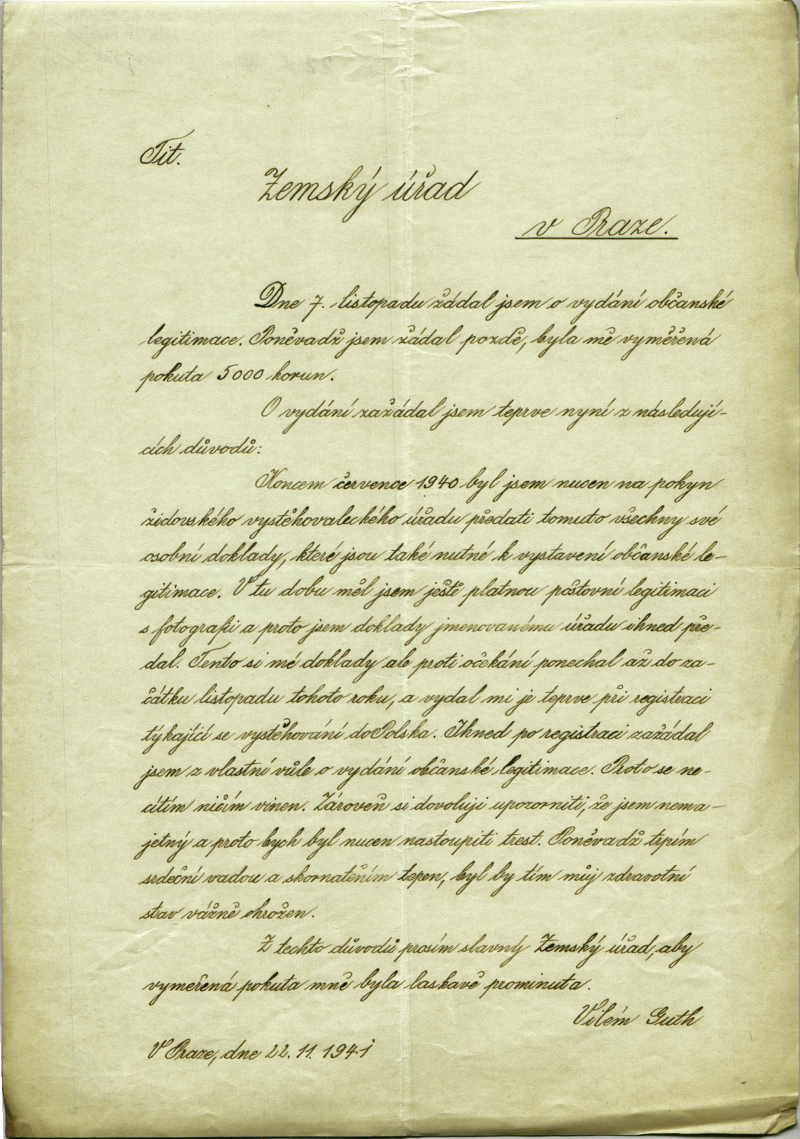 Tit.
Zemský úřad
v Praze.
Dne 7. listopadu žádal jsem o vydání občanské
legitimace. Poněvadž jsem žádal pozdě, byla mě vyměřená
pokuta 5000 korun.
O vydání zažádal jsem teprve nyní z následují-
cích důvodů:
Koncem července 1940 byl jsem nucen na pokyn
židovského vystěhovaleckého úřadu předati tomuto všechny své
osobní doklady, které jsou také nutné k vystavení občanské le-
gitimace. V tu dobu měl jsem ještě platnou poštovní legitimaci
s fotografii a proto jsem doklady jmenovanému úřadu ihned pře-
dal. Tento si mé doklady ale proti očekání ponechal až do za-
čátku listopadu tohoto roku, a vydal mi je teprve při registraci
týkající se vystěhování do Polska. Ihned po registraci zažádal
jsem z vlastní vůle o vydání občanské legitimace. Proto se ne-
cítím ničím vinen. Zároveň si dovoluji upozorniti, že jsem nema-
jetný a proto bych byl nucen nastoupiti trest. Poněvadž trpím
srdeční vadou a skornatěním tepen, byl by tím můj zdravotní
stav vážně ohrožen.
Z techto důvodů prosím slavný Zemský úřad, aby
vymeřená pokuta mně byla laskavě prominuta.
Vilém Guth
V Praze, dne 22. 11. 1941